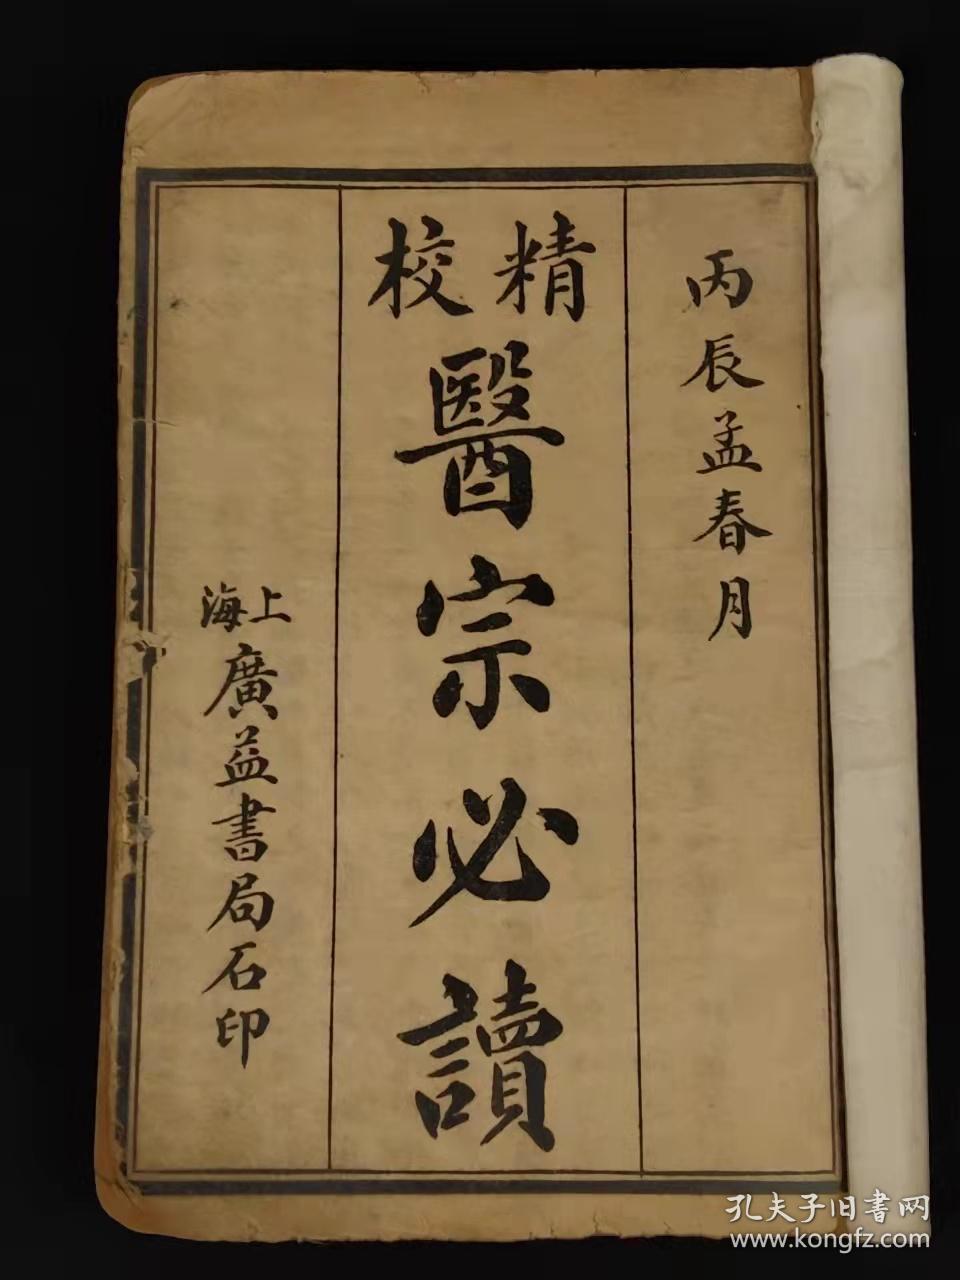 丙辰孟春月
精校
醫宗必讀
上海
廣益書局石印
孔夫子旧書网
www.kongfz.com